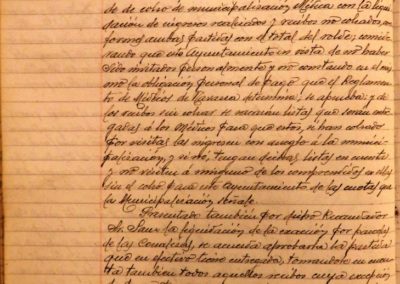 de de cobro de municipalización Médica con la liqui
dación de ingresos realizados y recibos no cobrados, con
forme ambas partidas con el total del saldo; consid
rando que este Ayuntamiento en vista de no haber
sido invitados personalmente y no constando en el mis
mo la obligación personal de pago que el Reglamen
to de Médicos de determina, se aprueba: y de
los recibos sin cobrar se sacarán listas que serán entre
gadas á los Médicos para que estos, si han cobrado
por visitas las ingresen con arreglo á la munici
palización, y si no, tengan dichas listas en cuenta
y no visiten á ninguno de los comprendidos en ellas
sin el cobro para este Ayuntamiento de las cuotas que
la Municipalización señale.
Presentado también por dicho Recaudador
Sr. la liquidación de la exacción por
de las, se acuerda aprobarla la partida
que en efectivo tiene entregada, tomandose en cuen
ta también todos aquellos recibos cuya excepción